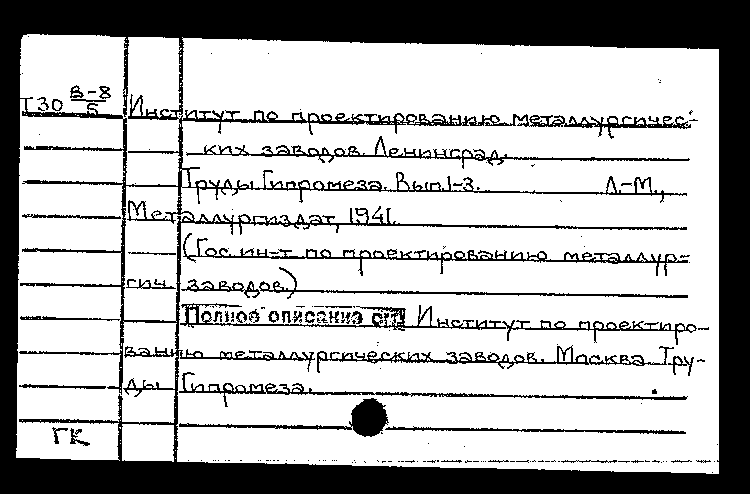 Т30 В-8/5 Институт по проектированию металлургичес-
ких заводов. Ленинград.
Труды Гипромеза. Вып.1-3. Л.-М.,
Металлургиздат, 1941.
(Гос. ин-т по проектированию металлур-
гич. заводов.)
Полное описание см. Институт по проектиро-
ванию металлургических заводов. Москва. Тру-
ды Гипромеза.
ГК